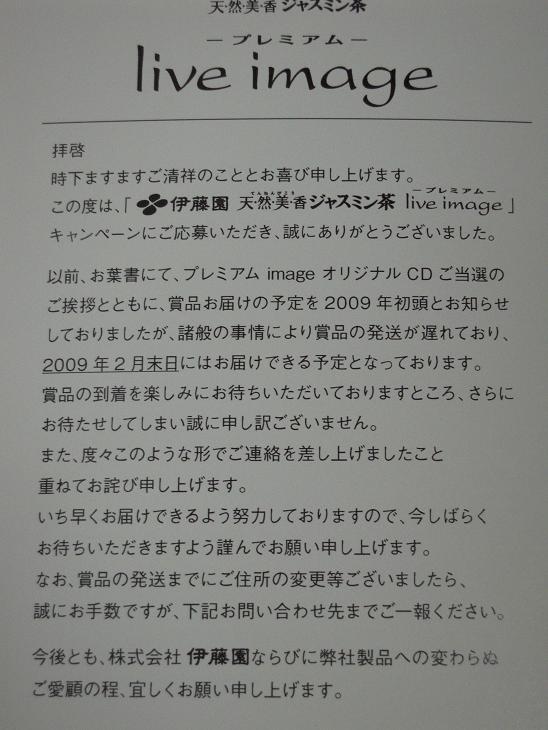 天・然・美・香 ジャスミン茶
―プレミアム―
live image
拝啓
時下ますますご清祥のこととお喜び申し上げます。
この度は、「伊藤園 天・然・美・香ジャスミン茶 live image」
てんねんびこう
―プレミアム―
キャンペーンにご応募いただき、誠にありがとうございました。
以前、お葉書にて、プレミアム image オリジナル CD ご当選の
ご挨拶とともに、賞品お届けの予定を 2009 年初頭とお知らせ
しておりましたが、諸般の事情により賞品の発送が遅れており、
2009 年 2 月末日にはお届けできる予定となっております。
賞品の到着を楽しみにお待ちいただいておりますところ、さらに
お待たせしてしまい誠に申し訳ございません。
また、度々このような形でご連絡を差し上げましたこと
重ねてお詫び申し上げます。
いち早くお届けできるよう努力しておりますので、今しばらく
お待ちいただきますよう謹んでお願い申し上げます。
なお、賞品の発送までにご住所の変更等ございましたら、
誠にお手数ですが、下記お問い合わせ先までご一報ください。
今後とも、株式会社 伊藤園ならびに弊社製品への変わらぬ
ご愛顧の程、宜しくお願い申し上げます。